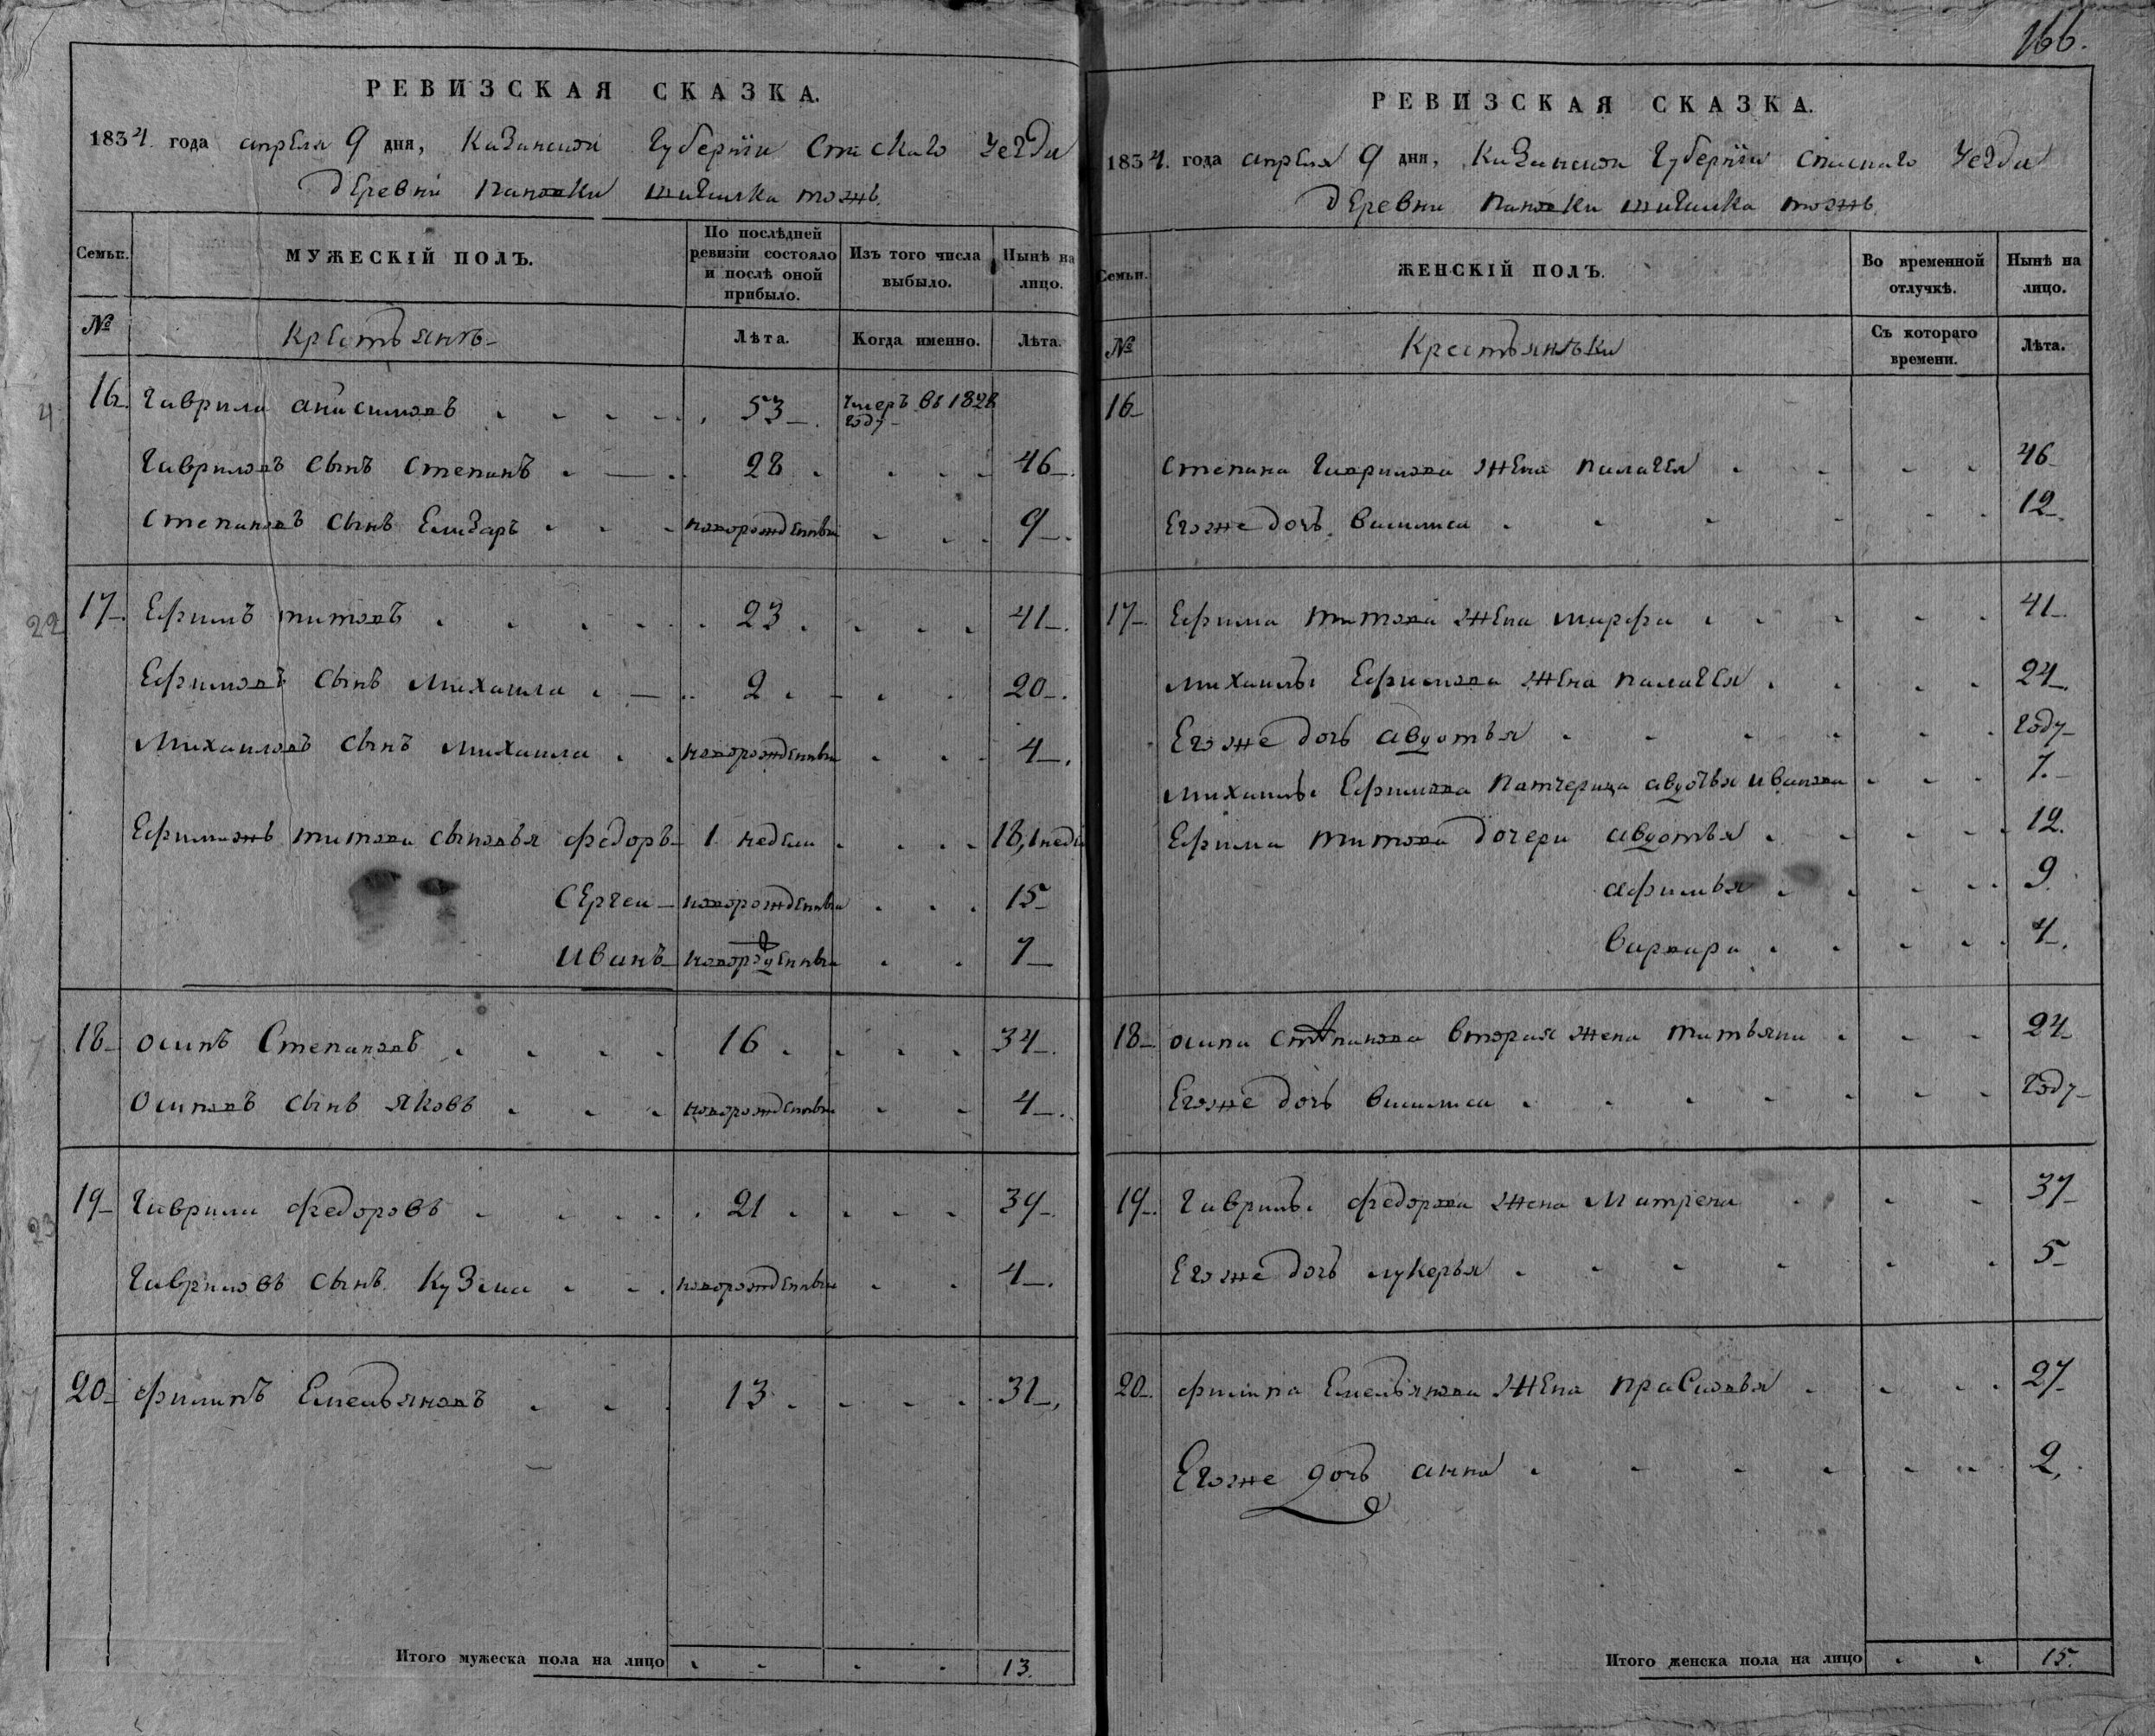 166.
РЕВИЗСКАЯ СКАЗКА.
1834. года апреля 9 дня, Казанской Губернїи Спаского Уезда
деревни Пановки Шигалка тожь.
Семьи.
МУЖЕСКІЙ ПОЛЪ.
По послѣдней ревизіи состояло и послѣ оной прибыло.
Изъ того числа выбыло.
Нынѣ на лицо.
№
Крестьянъ
Лѣта.
Когда именно.
Лѣта.
16 Гаврила анисимовъ 53 Умеръ въ 1828 году
Гавриловъ сынъ Степанъ 28 46
Степановъ сынъ Елизаръ новорожденны 9
17 Ефимъ титовъ 23 41
Ефимовъ сынъ Михаила 2 20
Михаиловъ сынъ Михаила новорожденны 4
Ефимовъ титова сыновья Федоръ 1 недели 18, 1 неде
Сергеи новорожденны 15
Иванъ новорожденны 7
18 Осипъ Степановъ 16 34
Осиповъ сынъ Яковъ новорожденны 4
19 Гаврила Федоровъ 21 39
Гавриловъ сынъ Кузма новорожденны 4
20 Филипъ Емельяновъ 13 31
Итого мужеска пола на лицо 13.
4
22
7
23
7
РЕВИЗСКАЯ СКАЗКА.
1834. года апреля 9 дня, Казанской Губернїи Спаскаго Уезда
деревни Пановки Шигалка тожь
Семьи.
ЖЕНСКІЙ ПОЛЪ.
Во временной отлучкѣ.
Нынѣ на лицо.
№
Крестьянъки
Съ котораго времени.
Лѣта.
16
Степана Гаврилова жена палагея 46
Егоже дочь Василиса 12
17 Ефима титова жена марфа 41
Михаилы Ефимова жена палагея 24
Егоже дочь авдотья году
Михаилы Ефимова патчерица авдотья иванова 7.
Ефима титова дочери авдотья 12.
афимья 9.
Варвара 4.
18 Осипа степанова вторая жена татьяна 24
Егоже дочь василиса году
19 Гаврилы федорова жена Матрена 37
Егоже дочь лукерья 5
20 филипа Емельянова жена прасковья 27
Егоже дочь анна 2.
Итого женска пола на лицо 15.